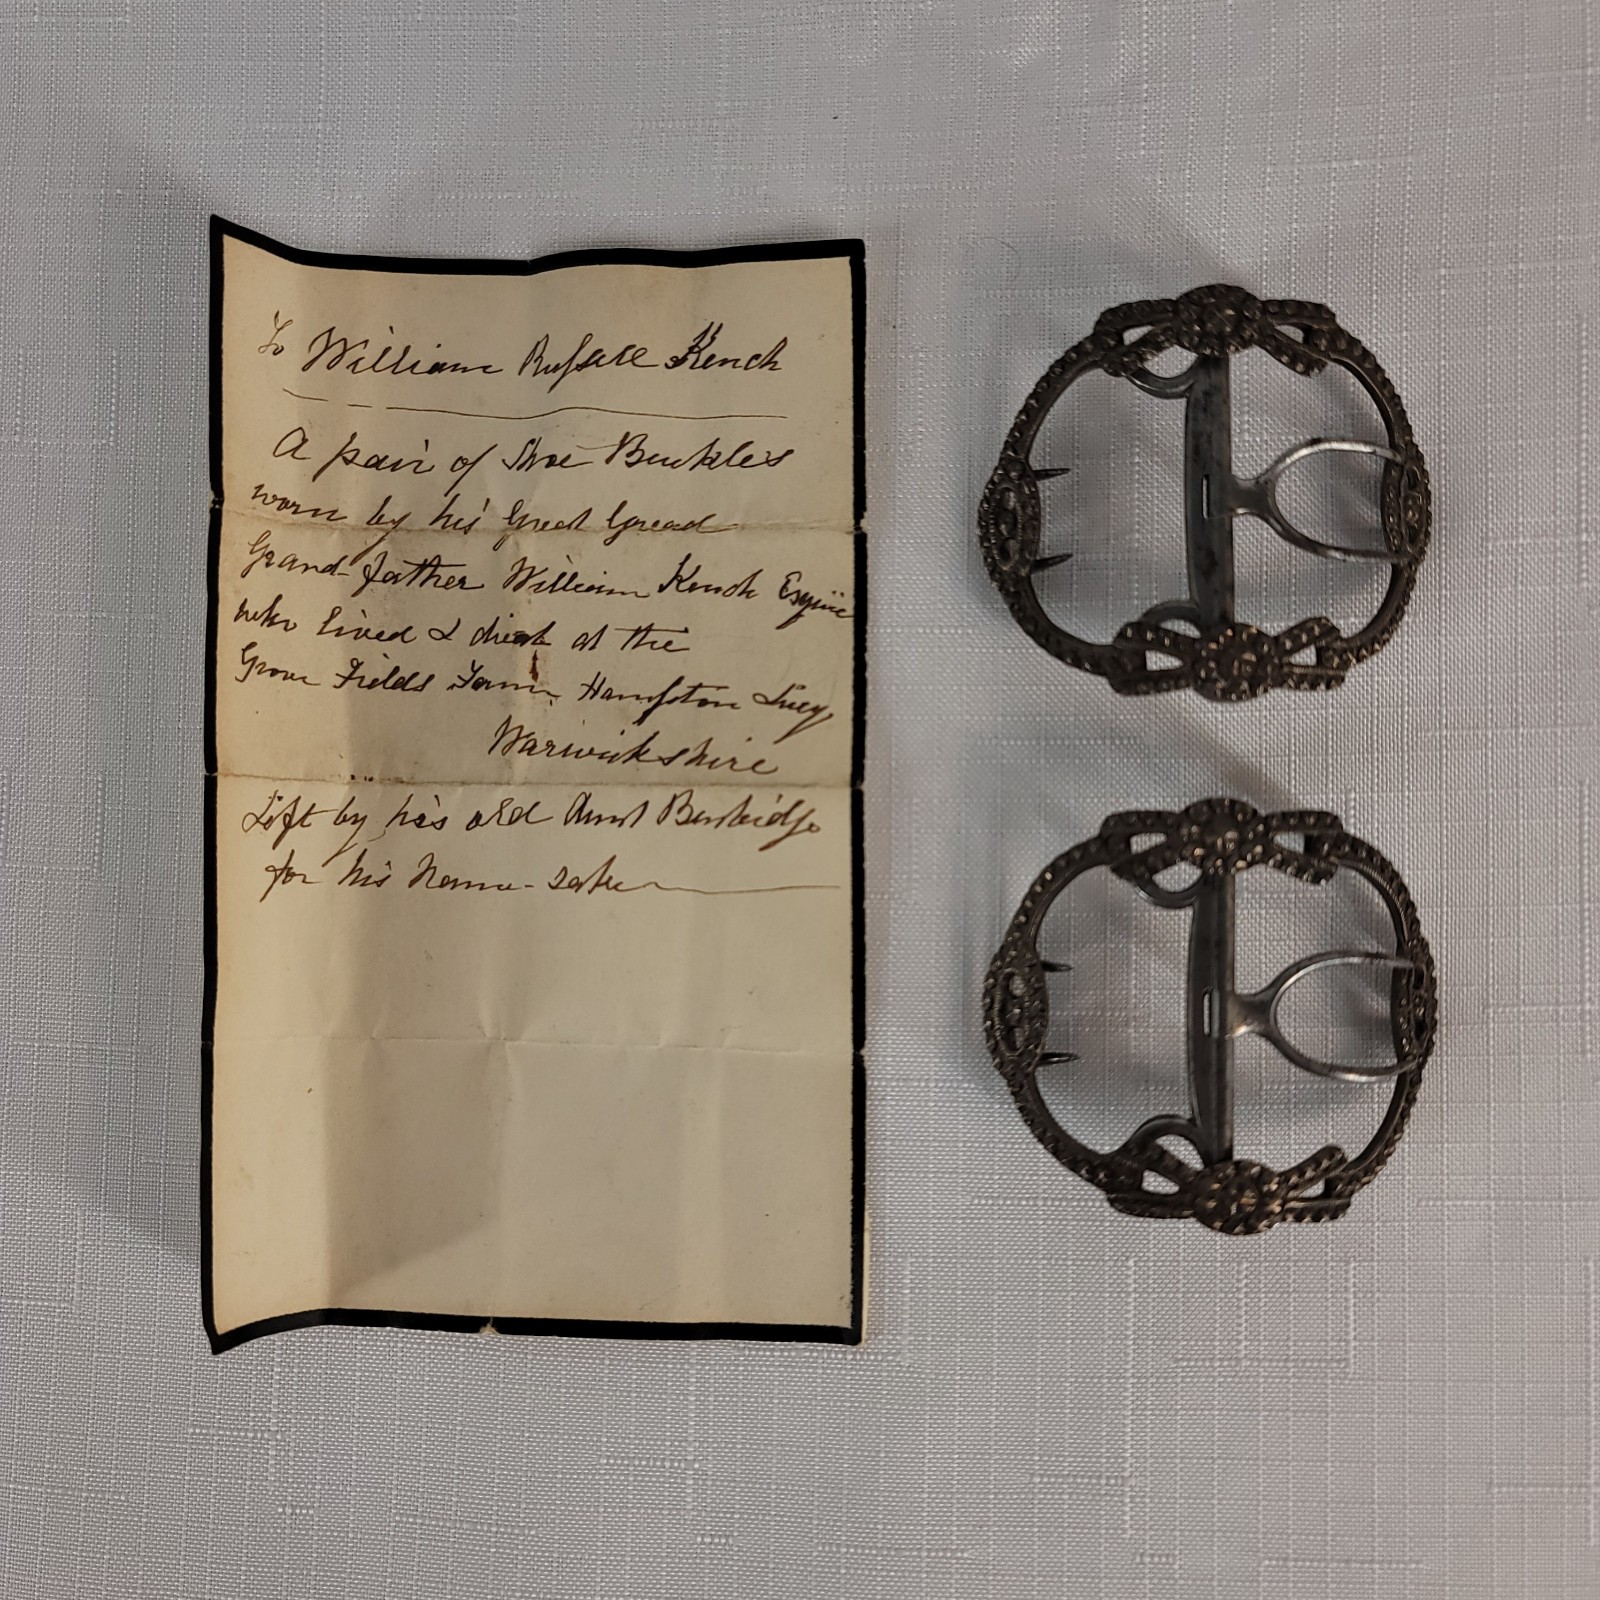 To William Russell Kench
A pair of Shoe Buckles
worn by his Great Great
Grand-father William Kench Esquire
who lived & died at the
Grove Fields Farm, Hampton Lucy,
Warwickshire
Left by his old Aunt
for his Name-sake